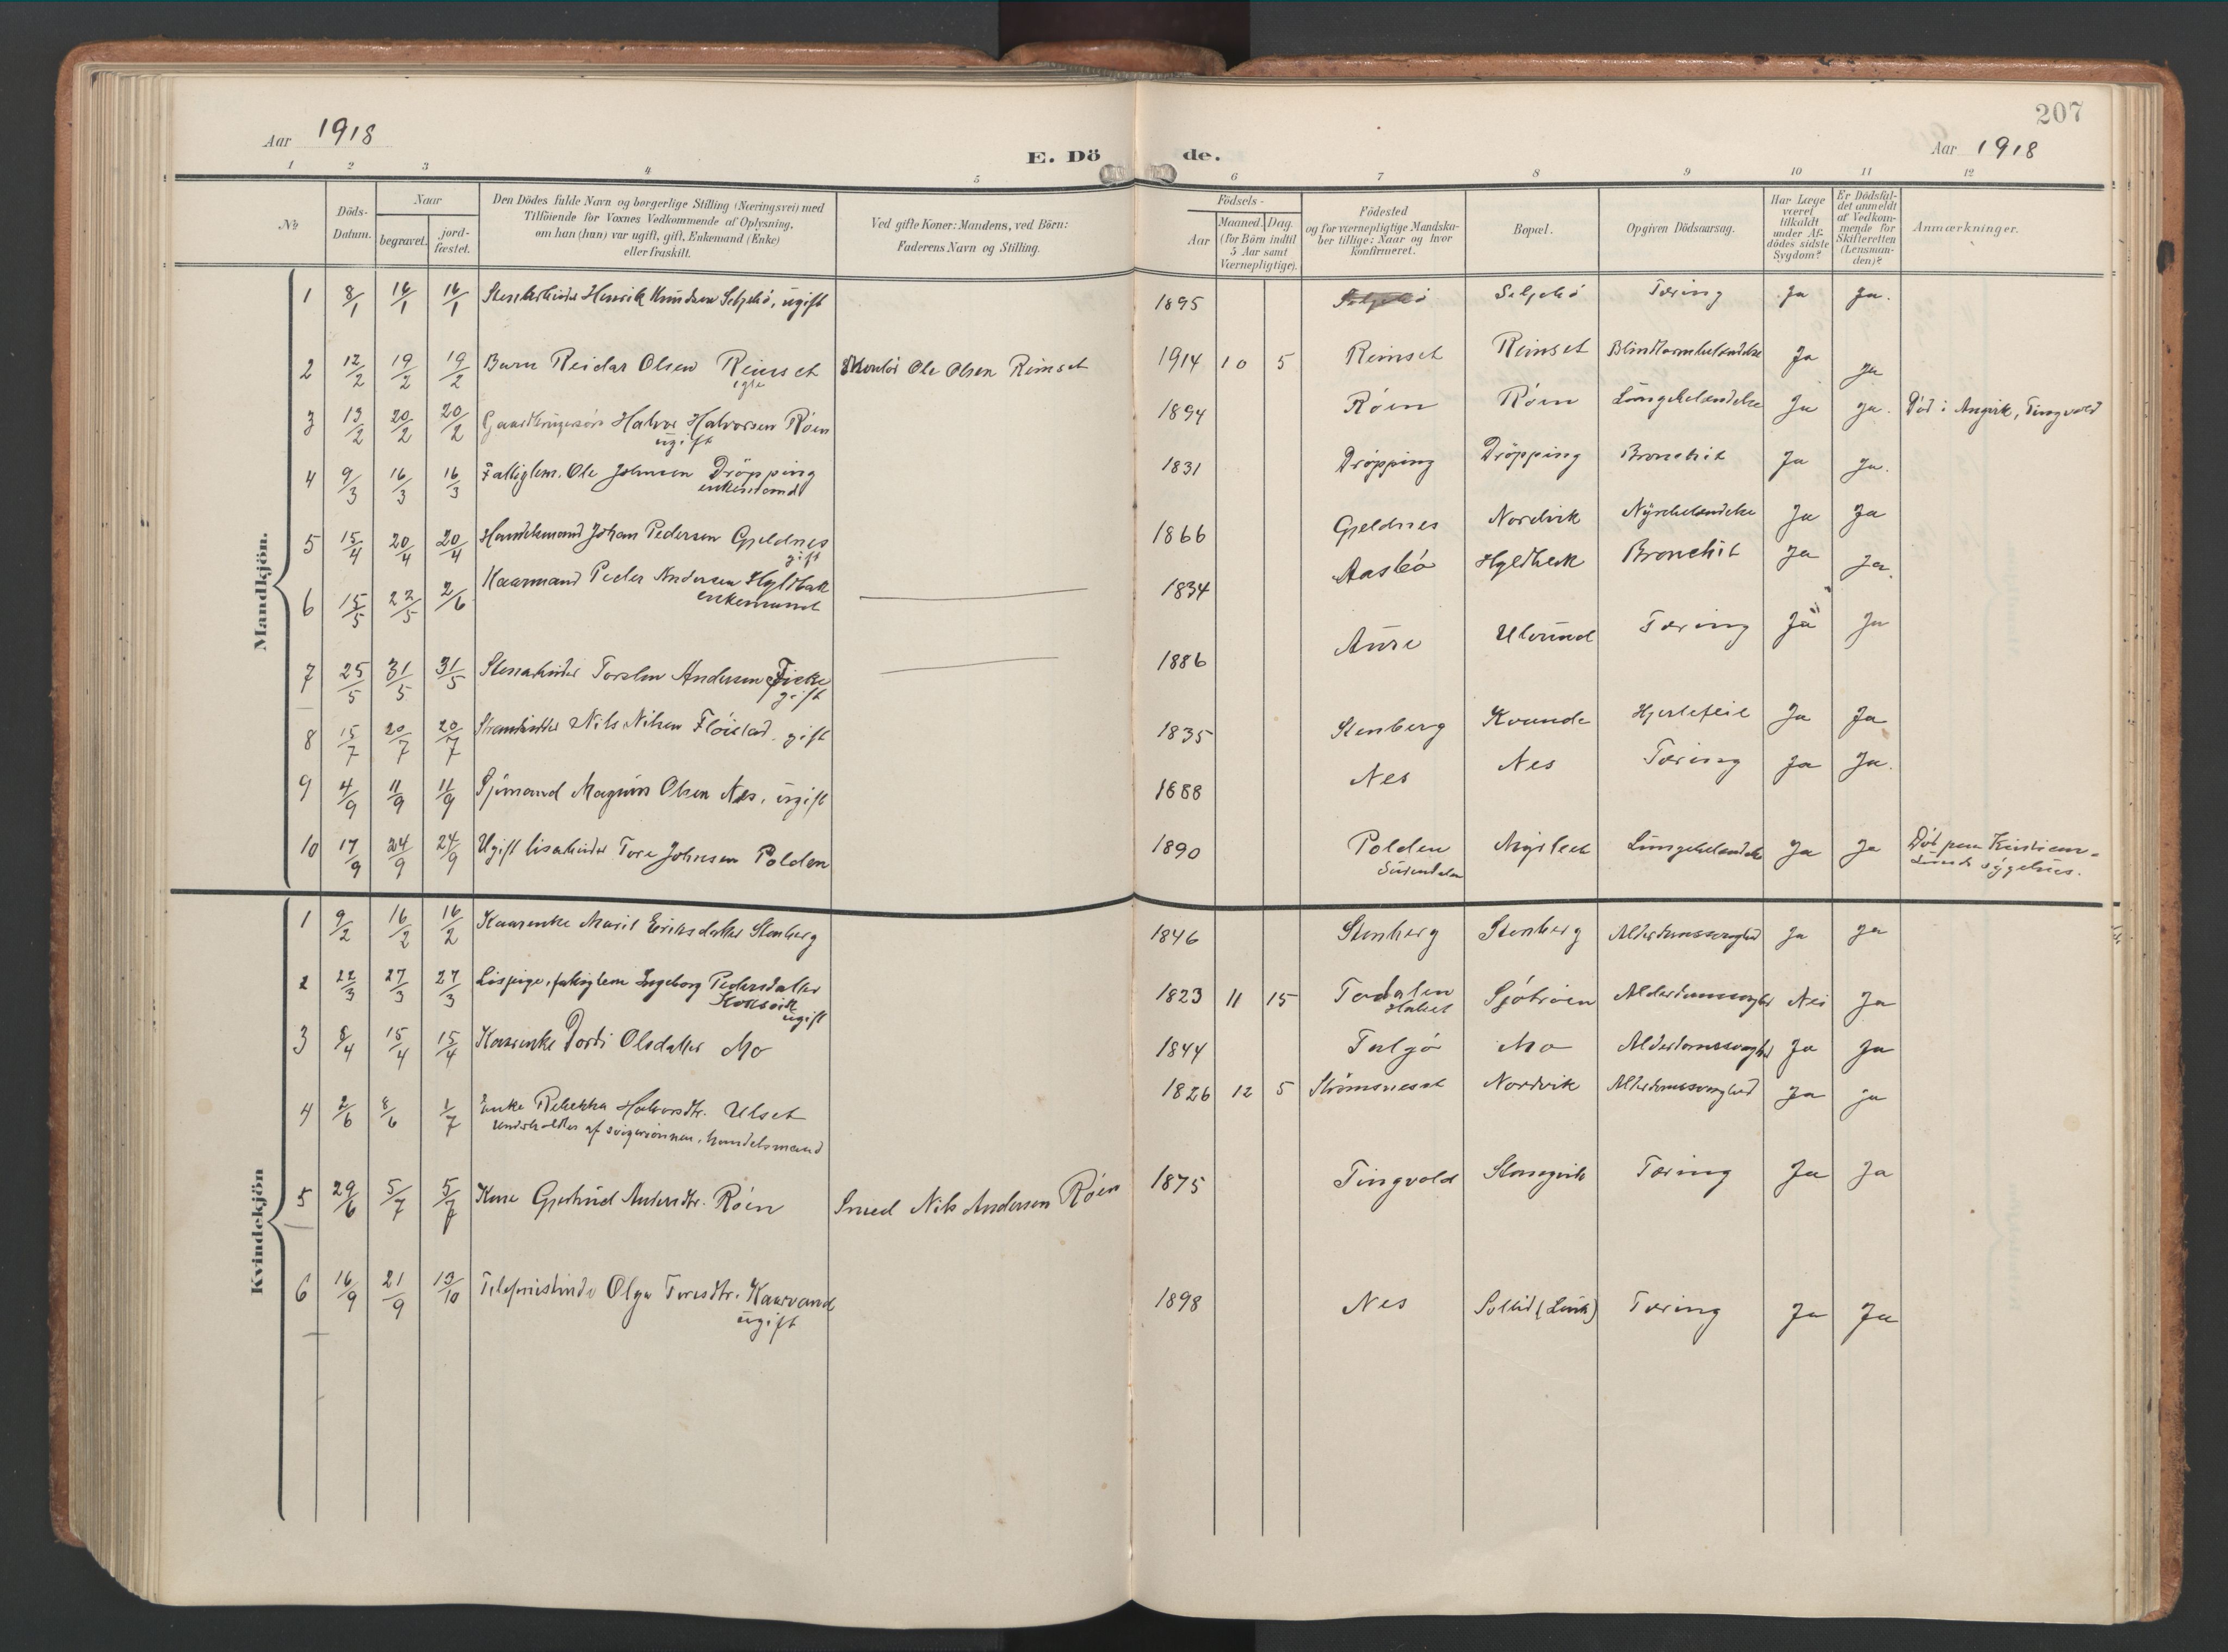 207
Aar 1918
E. Dö
de.
Aar 1918
1 2 3 4 5 6 7 8 9 10 11 12
№
Döds-Datum.
Naar
begravet.
jord-fæstet.
Den Dödes fulde Navn og borgerlige Stilling (Næringsvei) med
Tilföiende for Voxnes Vedkommende af Oplysning,
om han (hun) var ugift, gift, Enkemand (Enke)
eller fraskilt.
Ved gifte Koner: Mandens, ved Börn:
Faderens Navn og Stilling.
Födsels-
Aar
Maaned. Dag.
(for Börn indtil
5 Aar samt
Værnepligtige).
Födested
og for værnepligtige Mandska-
ber tillige: Naar og hvor
konfirmeret.
Bopæl.
Opgiven Dödsaarsag.
Har Læge
været
tilkaldt
under Af-
dödes sidste
Sygdom?
Er Dödsfal-
det anmeldt
af Vedkom-
mende for
Skifteretten
(Lensman-
den)?
Anmærkninger.
Mandkjön.
1 8/1 16/1 16/1 Henrik Knudsen Seljebö, ugift 1895 Seljebö Tæring Ja Ja.
2 12/2 19/2 19/2 Barn Reidar Olsen Reinset Ole Olsen Reinset 1914 10 5 Reinset Reinset Blindtarmbetændelse Ja Ja
egte
3 13/2 20/2 20/2 Gaardbrugersön Halvor Halvorsen Röen 1894 Röen Röen Lungebetændelse Ja Ja. Död i Angvik, Tingvold
ugift
4 9/3 16/3 16/3 Fattiglem. Ole Johnsen Dröpping 1831 Dröpping Dröpping Bronchit Ja Ja.
enkemand
5 15/4 20/4 20/4 Handelsmand Johan Pedersen Gjeldnes 1866 Gjeldnes Nordvik Nyrebetændelse Ja Ja
gift
6 15/5 22/5 2/6 Kaarmand Peder Andersen Hyldbak 1834 Aasbö Hyldbak Bronchit Ja Ja.
enkemand
7 25/5 31/5 31/5 Stenarbeider Torsten Andersen 1886 Aure Ulvund Tæring Ja Ja
gift
8 15/7 20/7 20/7 Strandsidder Nils Nilsen Flöistad. gift 1835 Stenberg Kvande Hjertefeil Ja Ja
9 4/9 11/9 11/9 Sjömand Magnus Olsen Nes, ugift 1888 Nes Nes Tæring Ja Ja.
10 17/9 24/9 24/9 Ugift Tore Johnsen Polden 1890 Polden Lungebetændelse Ja Ja Död paa Kristian-
Surendalen
sunds sygehus.
Kvindekjön
1 9/2 16/2 16/2 Kaarenke Marit Eriksdatter Stenberg 1846 Stenberg Stenberg Alderdomssvaghed Ja Ja
2 22/3 27/3 27/3 fattiglem Ingeborg Pedersdatter 1823 11 15 Todalen Alderdomssvaghed Nei Ja
ugift
3 8/4 15/4 15/4 Kaarenke Dordi Olsdatter Mo 1844 Talgö Mo Alderdomssvaghed Ja Ja
4 2/6 8/6 1/7 Enke Rebekka Halvorsdtr. Ulset 1826 12 5 Strömsneset Nordvik Alderdomssvaghed Ja ja
af svigersönnen, handelsmand
5 29/6 5/7 5/7 Kone Gjertrud Andersdtr. Röen Smed Nils Andersen Röen 1875 Tingvold Stangvik Tæring Ja Ja
6 16/9 21/9 13/10 Telefonistinde Olga Toresdtr. Kaarvand 1898 Nes Tæring Ja Ja
ugift